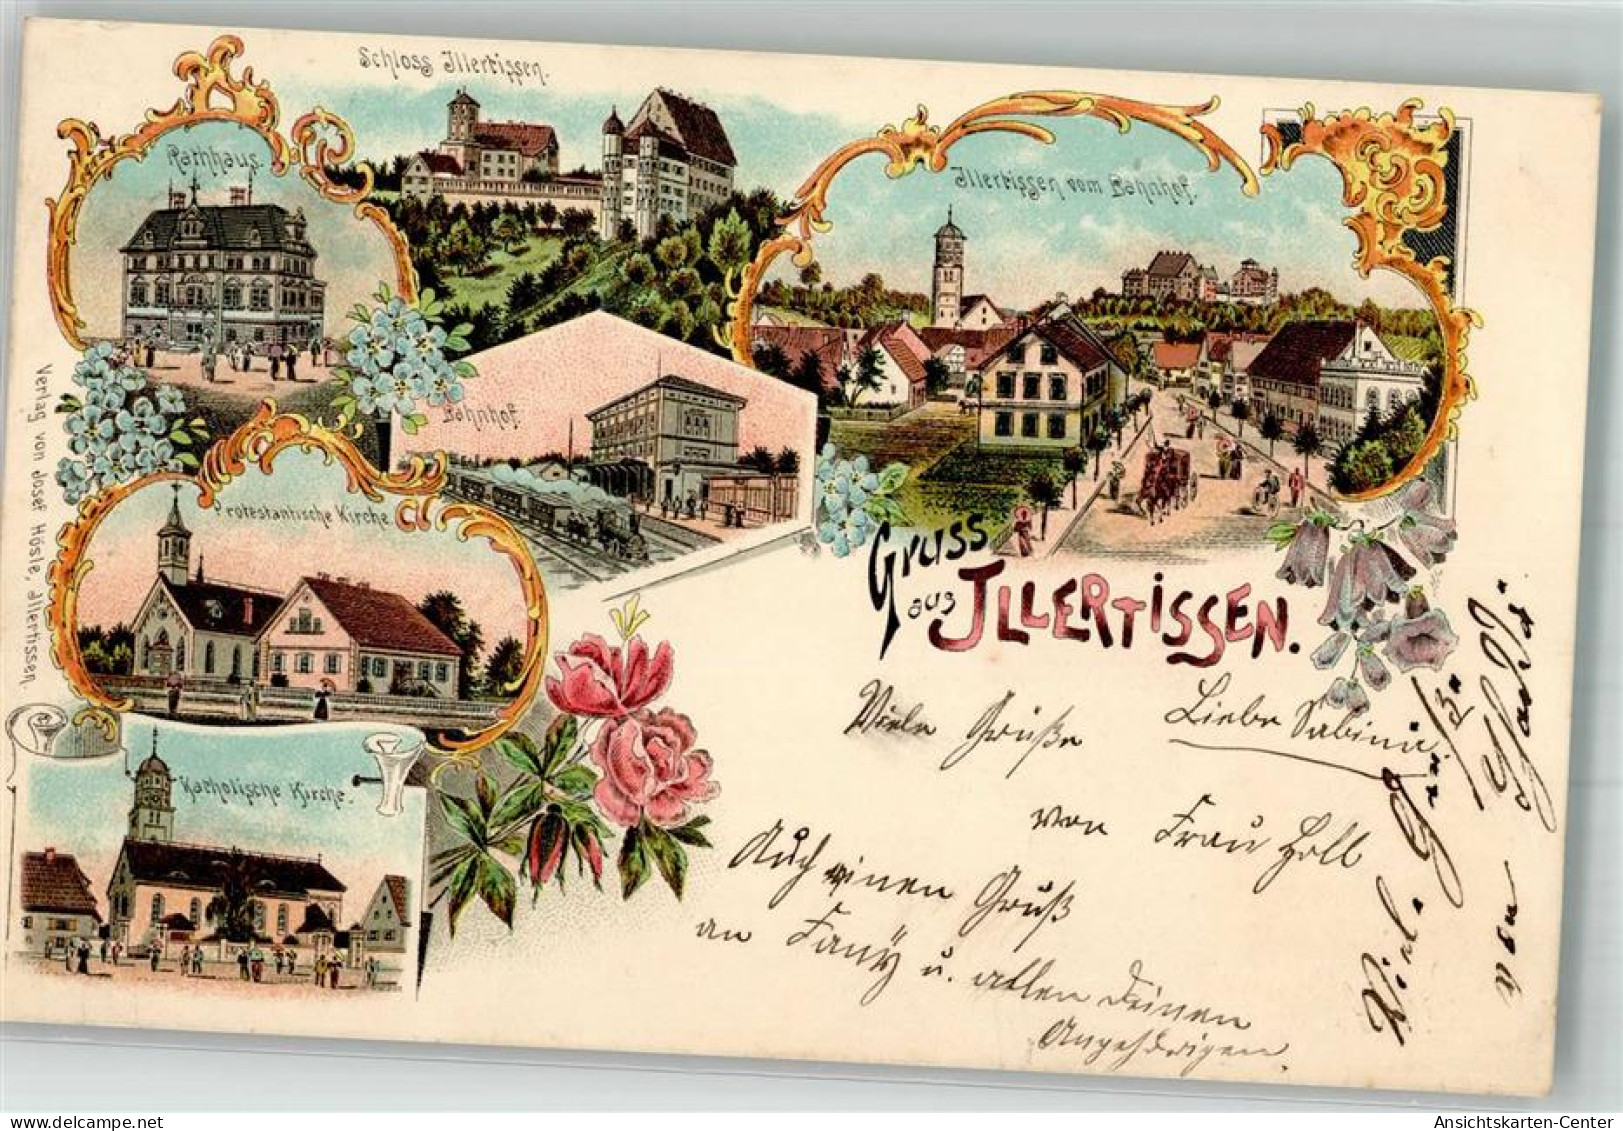 Schloss Illertissen.
Rathhaus.
Illertissen vom Bahnhof.
Bahnhof.
Protestantische Kirche.
Katholische Kirche.
Verlag von Josef Hösle, Illertissen.
Gruss
aus ILLERTISSEN.
Liebe Sabina
Viele Grüße
von Frau Holl
Auch einen Gruß
an Fanÿ u. allen Deinen
Angehörigen.
Viele
von
Ansichtskarten-Center